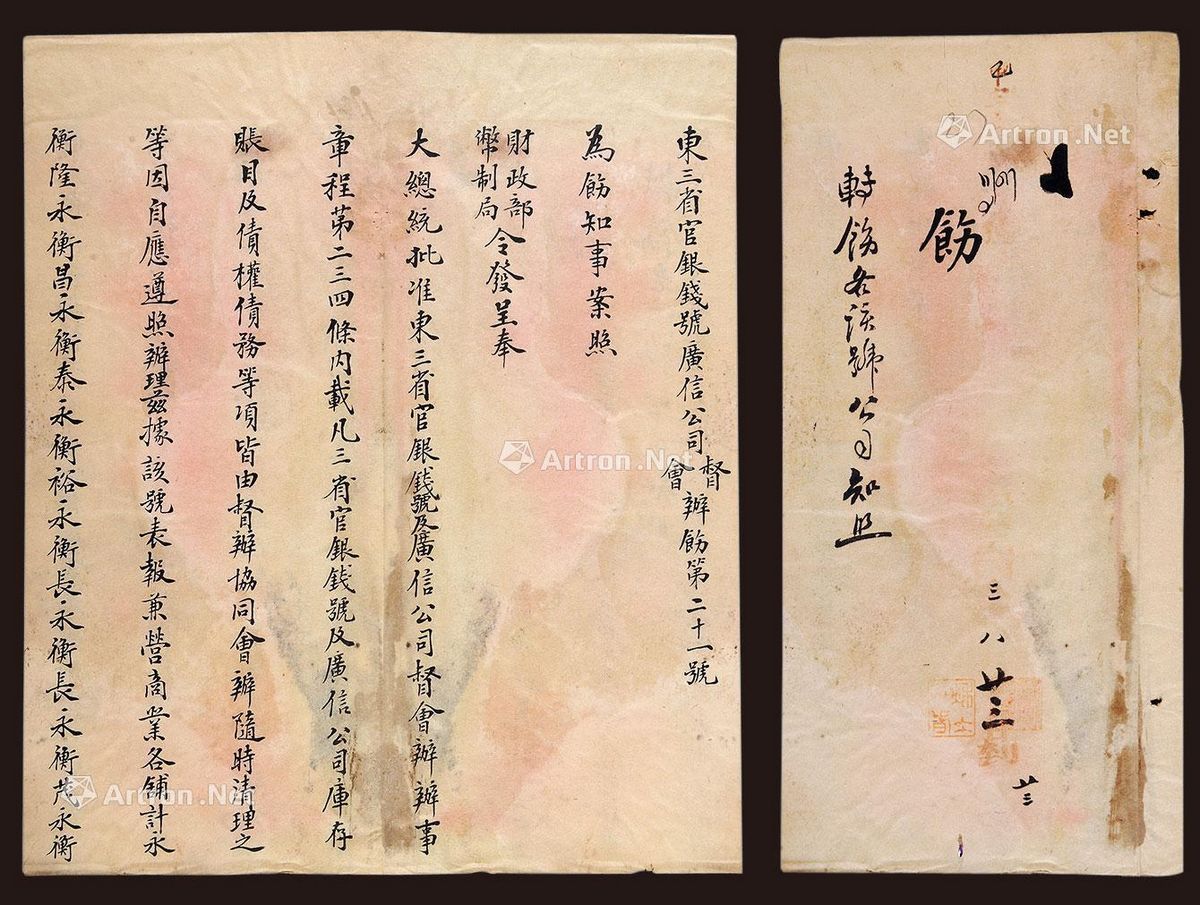 東三省官銀錢號廣信公司督會辦飭第二十一號
為飭知事案照
財政部
幣制局令發呈奉
大總統批准東三省官銀錢號及廣信公司督會辦辦事
章程第二三四條內載凡三省官銀錢號及廣信公司庫存
賬目及債權債務等項皆由督辦協同會辦隨時清理之
等因自應遵照辦理茲據該號表報兼營商業各舖計永
衡隆永衡昌永衡泰永衡裕永衡長永衡長永衡茂永衡
飭
轉飭各該號公司知照
三
八
廿三
廿三
到
Artron.Net
Artron.Net
Artron.Net
Artron.Net